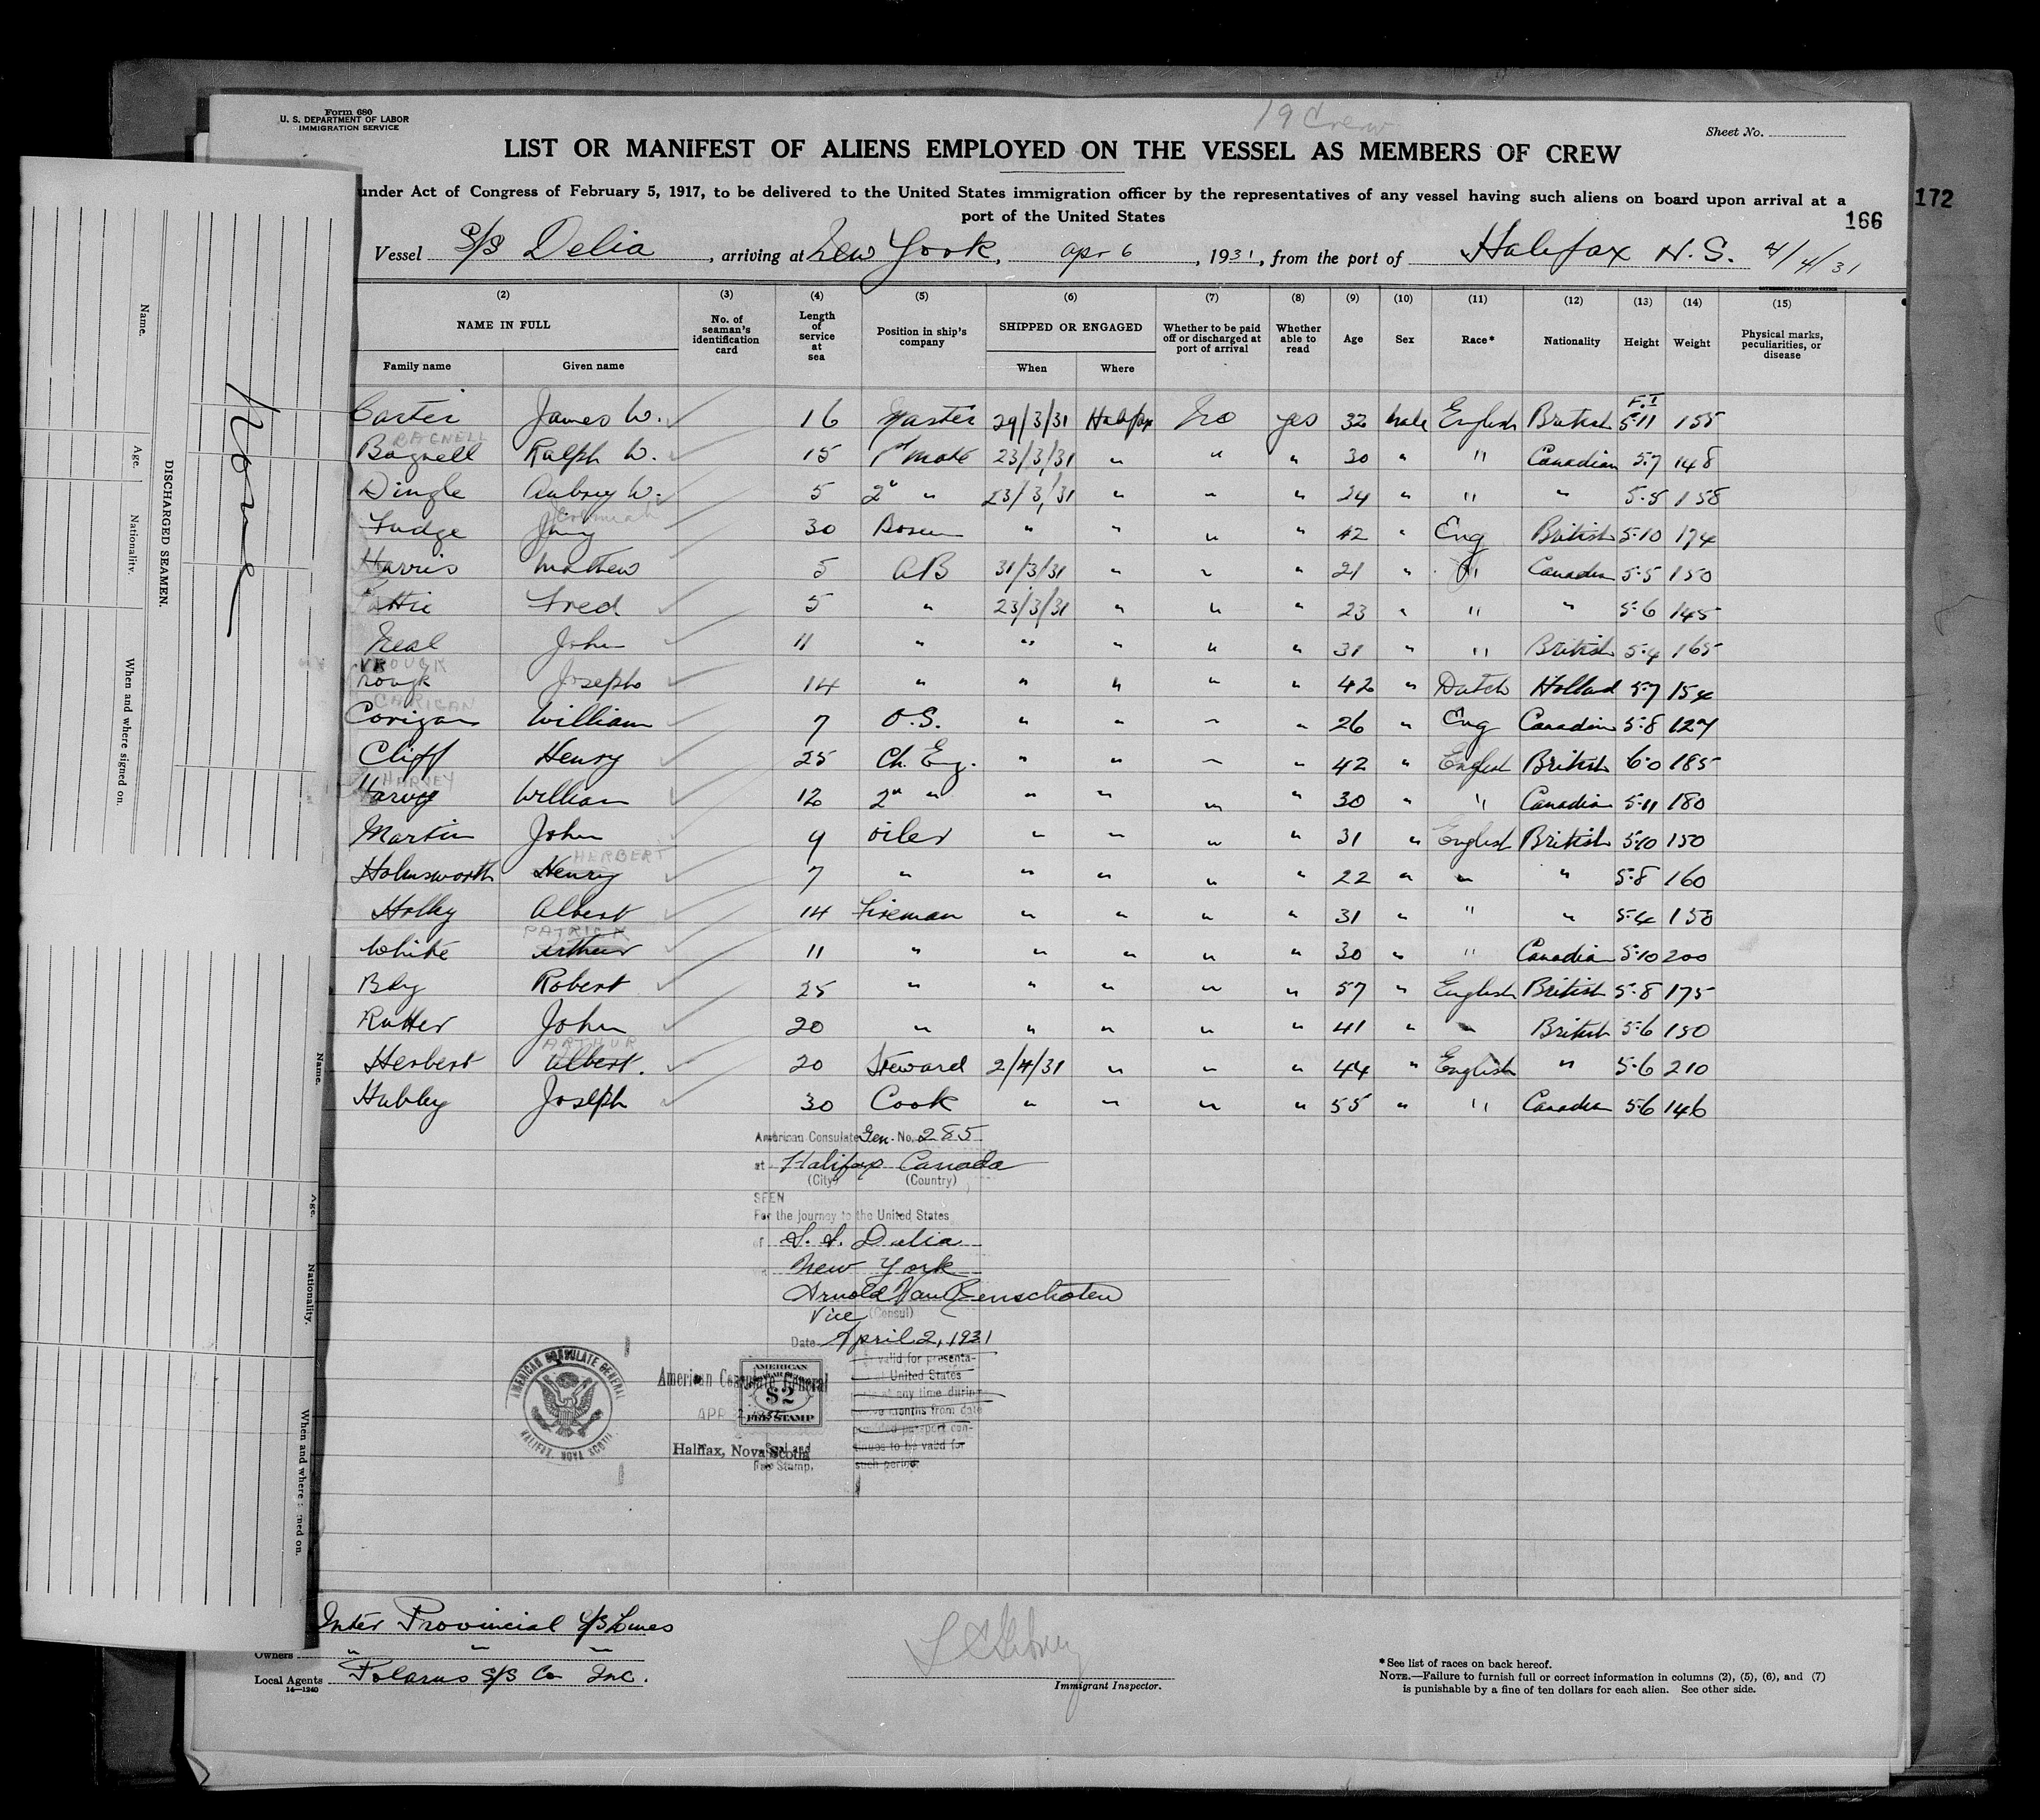 Form 680
U. S. DEPARTMENT OF LABOR
IMMIGRATION SERVICE
19 Crew
Sheet No.
LIST OR MANIFEST OF ALIENS EMPLOYED ON THE VESSEL AS MEMBERS OF CREW
under Act of Congress of February 5, 1917, to be delivered to the United States immigration officer by the representatives of any vessel having such aliens on board upon arrival at a
port of the United States
172
166
Vessel S/S Delia, arriving at New York, Apr 6, 1931, from the port of Halifax N.S. 4/4/31
(2) (3) (4) (5) (6) (7) (8) (9) (10) (11) (12) (13) (14) (15)
NAME IN FULL No. of seaman's identification card Length of service at sea Position in ship's company SHIPPED OR ENGAGED Whether to be paid off or discharged at port of arrival Whether able to read Age Sex Race* Nationality Height Weight Physical marks, peculiarities, or disease
Family name Given name When Where
F.I
Carter James W. 16 Master 29/3/31 Halifax No yes 32 Male English British 5-11 155
BAGNELL
Bagnell Ralph W. 15 1st Mate 23/3/31 " " " 30 " " Canadian 5-7 148
Dingle Aubrey W. 5 2" " 23/3/31 " " " 24 " " " 5-5 158
Jeremiah
Fudge Jerry 30 Bosun " " " " 42 " Eng British 5-10 174
Harris Mathew 5 AB 31/3/31 " " " 21 " " Canadian 5-5 150
Fred 5 " 23/3/31 " " " 23 " " " 5-6 145
Neal John 11 " " " " " 31 " " British 5-4 165
VROUGK
Joseph 14 " " " " " 42 " Dutch Holland 5-7 154
CARIGAN
Corigan William 7 O.S. " " " " 26 " Eng Canadian 5-8 127
Cliff Henry 25 Ch. Eng. " " " " 42 " English British 6-0 185
HARVEY
Harvy William 12 2" " " " " " 30 " " Canadian 5-11 180
Martin John 9 oiler " " " " 31 " English British 5-10 150
HERBERT
Holmsworth Henry 7 " " " " " 22 " " " 5-8 160
Holby Albert 14 Fireman " " " " 31 " " " 5-4 150
PATRICK
White Arthur 11 " " " " " 30 " " Canadian 5-10 200
Bly Robert 25 " " " " " 57 " English British 5-8 175
Rutter John 20 " " " " " 41 " " British 5-6 150
ARTHUR
Herbert Albert. 20 Steward 2/4/31 " " " 44 " English " 5-6 210
Hubley Joseph 30 Cook " " " " 55 " " Canadian 5-6 146
American Consulate Gen. No. 285
at Halifax Canada
(City) (Country)
SEEN
For the journey to the United States
S. S. Delia
New York
Arnold Van Benschoten
Vice (Consul)
Date April 2, 1931
valid for presenta-
United States
at any time during
months from date
provided passport con-
tinues to be valid for
such period.
AMERICAN CONSULATE GENERAL
HALIFAX, NOVA SCOTIA
American Consulate General
APR 2 1931
Halifax, Nova Scotia
AMERICAN
$2
FEE STAMP
Seal and
Fee Stamp.
Inter Provincial S/S Lines
Owners " " "
Local Agents Polarus S/S Co Inc.
14—1240
Immigrant Inspector.
*See list of races on back hereof.
NOTE.—Failure to furnish full or correct information in columns (2), (5), (6), and (7)
is punishable by a fine of ten dollars for each alien. See other side.
DISCHARGED SEAMEN.
Name. Age. Nationality. When and where signed on.
None
Name. Age. Nationality. When and where signed on.